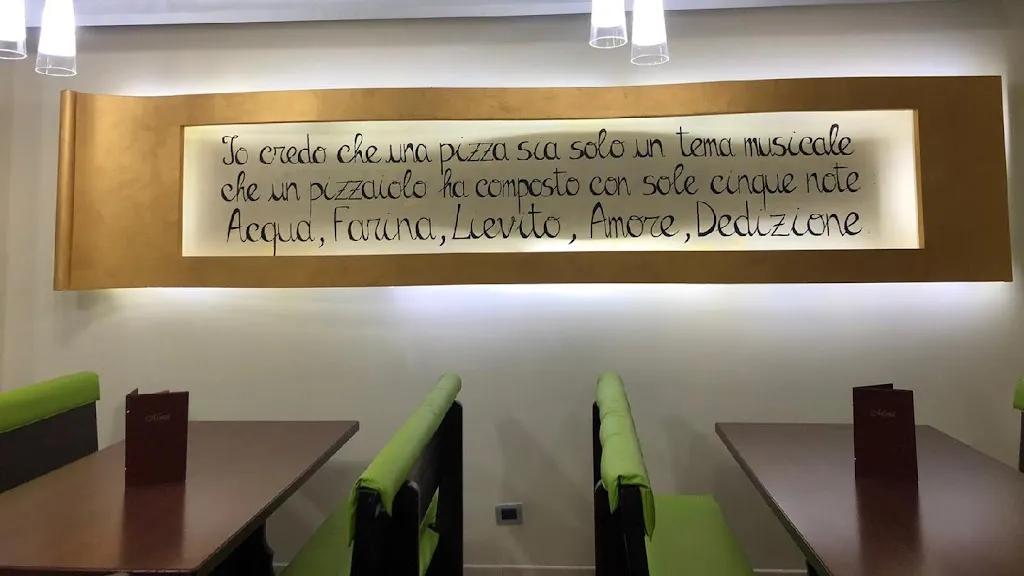 Io credo che una pizza sia solo un tema musicale
che un pizzaiolo ha composto con sole cinque note
Acqua, Farina, Lievito, Amore, Dedizione.
Menù
Menù